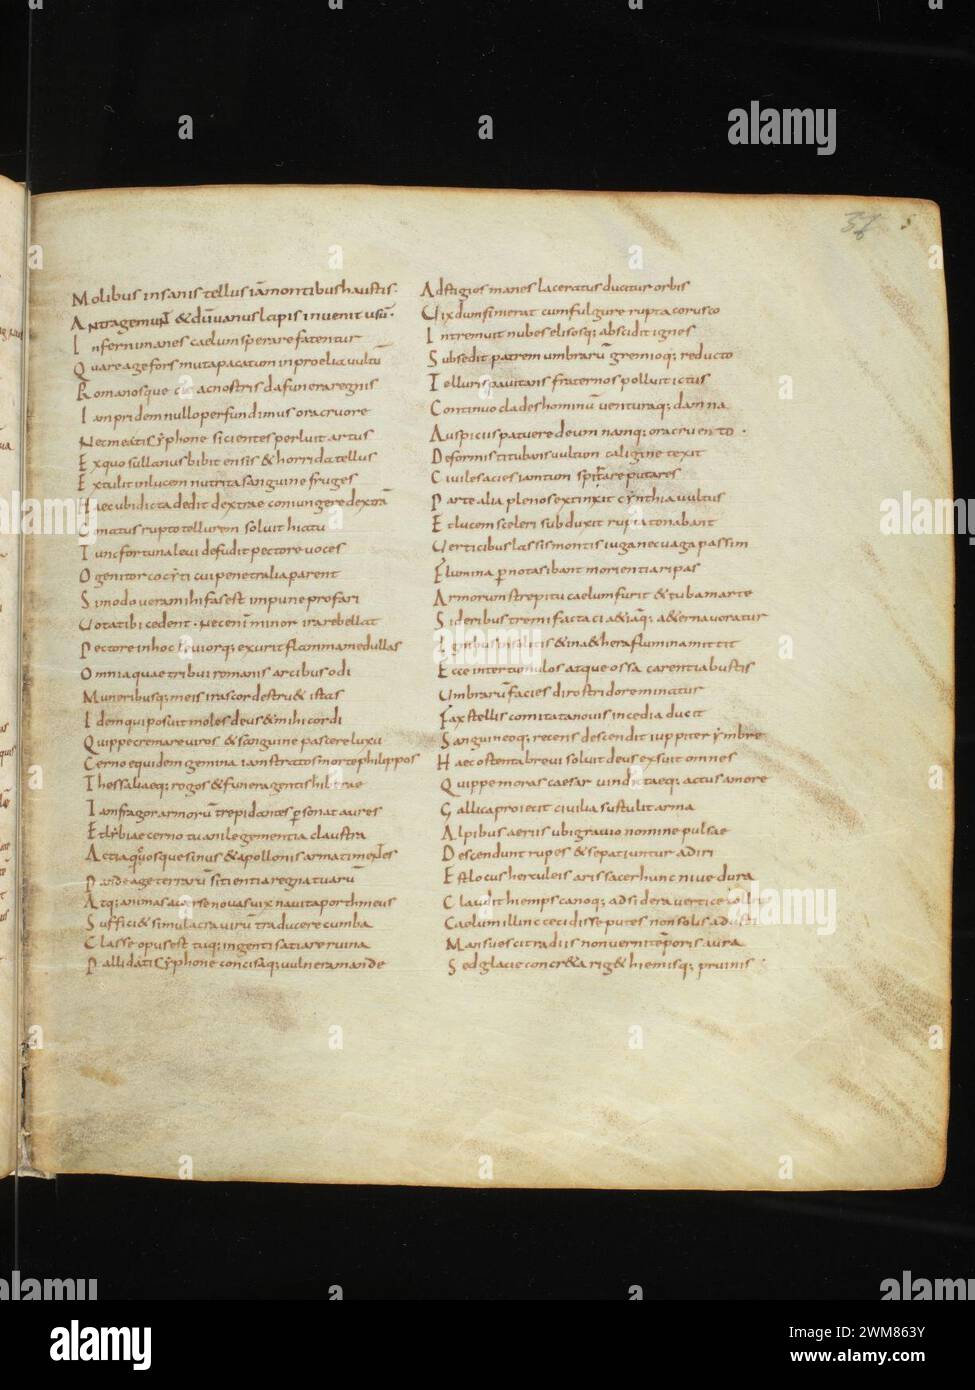 Molibus insanis tellus iā montibus haustis·
Antra gemunt & dū vanus lapis invenit usū·
Inferni manes caelum sperare fatentur
Quare age fors muta pacatum in proelia vultū
Romanosque cie ac nostris da funera regnis
Iam pridem nullo perfundimus ora cruore
Nec mea tisyphone sicientes perluit artus
Ex quo sullanus bibit ensis & horrida tellus
Extulit in lucem nutrita sanguine fruges
Haec ubi dicta dedit dextrae coniungere dextrā
Conatus rupto tellurem soluit hiatu
Tunc fortuna levi defudit pectore voces
O genitor cocyti cui penetralia parent
Si modo vera mihi fas est impune profari
Vota tibi cedent· Nec enī minor ira rebellat
Pectore in hoc leviorq; exurit flamma medullas
Omnia quae tribui romanis arcibus odi
Muneribusq; meis irascor destru& istas
Idem qui posuit moles deus & mihi cordi
Quippe cremare viros & sanguine pascere luxū
Cerno equidem gemina iam stratos morte philippos
Thessaliaeq; rogos & funera gentis hiberae
Iam fragor armorū trepidantes personat aures
Et lybiae cerno tua nile gementia claustra
Actiaquosque sinus & apollonis arma timentes
Pande age terrarū sitientia regna tuarū
Atq; animas
Suffici& simulacra virū traducere cumba
Classe opus est tuq; ingenti satiare ruina
Pallida tisyphone concisaq; vulnera mande
Ad stigios manes laceratus ducitur orbis
Vix dum finierat cum fulgure rupta corusco
Intremuit nubes elisosq; abscidit ignes
Subsedit pater umbrarū gremioq; reducto
Telluris pavitans fraternos polluit ictus
Continuo clades hominū venturaq; damna
Auspiciis patuere deum namq; ora cruento·
Deformis titubans vultum caligine texit
Civiles acies iam tum spirare putares
Parte alia plenos extinxit cynthia vultus
Et lucem sceleri subduxit rupta tonabant
Verticibus lassis montis iuga nec vaga passim
Flumina per notas ibant morientia ripas
Armorum strepitu caelum furit & tuba marte
Sideribus tremefacta
Ignibus insolitis & in aethera flumina mittit
Ecce inter tumulos atque ossa carentia bustis
Umbrarū facies diro stridore minatur
Fax stellis comitata novis incedia ducit
Sanguineoq; recens descendit iuppiter ymbre
Haec ostenta brevi soluit deus exsuit omnes
Quippe moras caesar vindictaeq; actus amore
Gallica proiecit civilia sustulit arma
Alpibus aeriis ubi graio nomine pulsae
Descendunt rupes & se patiuntur adiri
Est locus herculeis aris sacer hunc nive dura
Claudit hiemps canoq; ad sidera vertice tollit
Caelum illinc cecidisse putes non solis adusti
Mansuescit radiis non verni temporis aura
Sed glacie concr&a rig& hiemisq; pruinis
alamy
Image ID: 2WM863Y
www.alamy.com